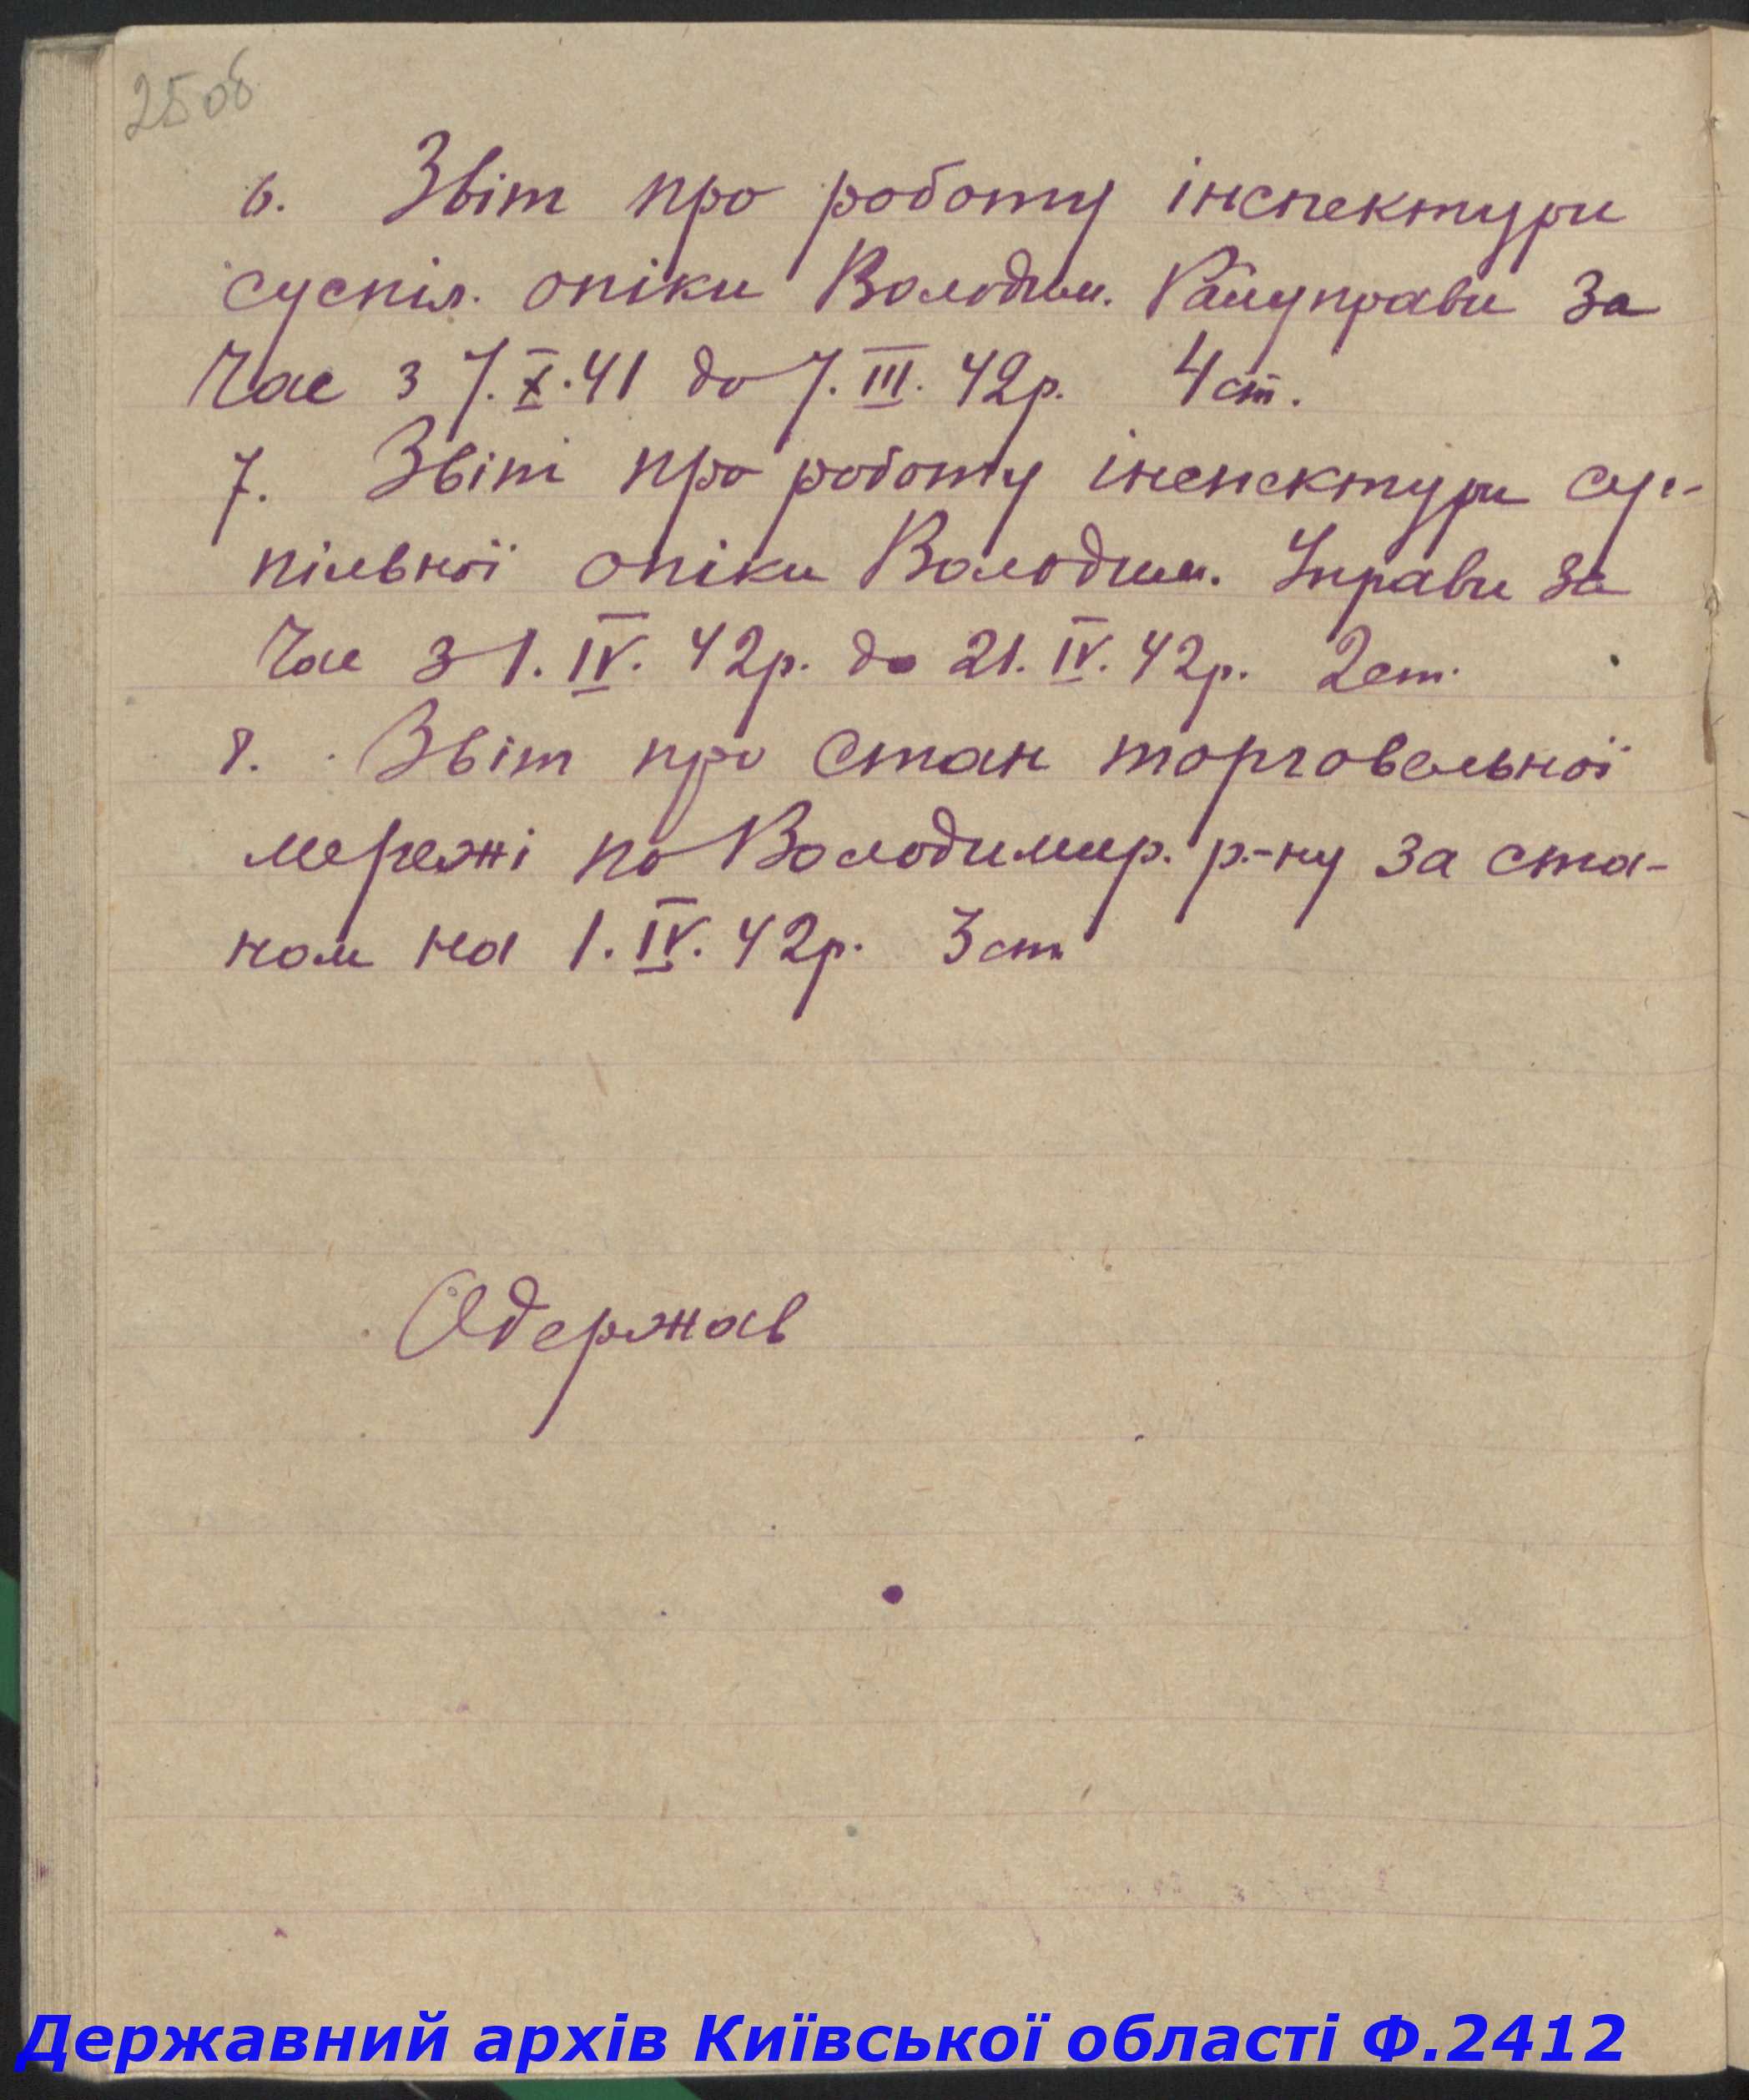 25об
6. Звіт про роботу інспектури
суспіл. опіки Володим. Райуправи за
час з 7.X.41 до 7.III.42р. 4 ст.
7. Звіт про роботу інспектури сус-
пільної опіки Володим. Управи за
час з 1.IV.42р. до 21.IV.42р. 2 ст.
8. Звіт про стан торговельної
мережі по Володимир. р-ну за ста-
ном на 1.IV.42р. 3 ст
Одержав
Державний архів Київської області Ф.2412